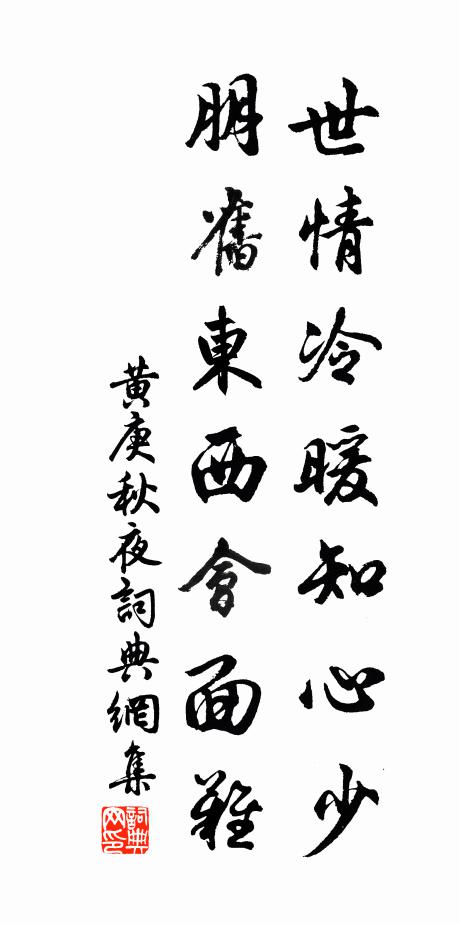 世情冷暖知心少
朋舊東西會面難
黃庚秋夜詞典網集
詞典网印